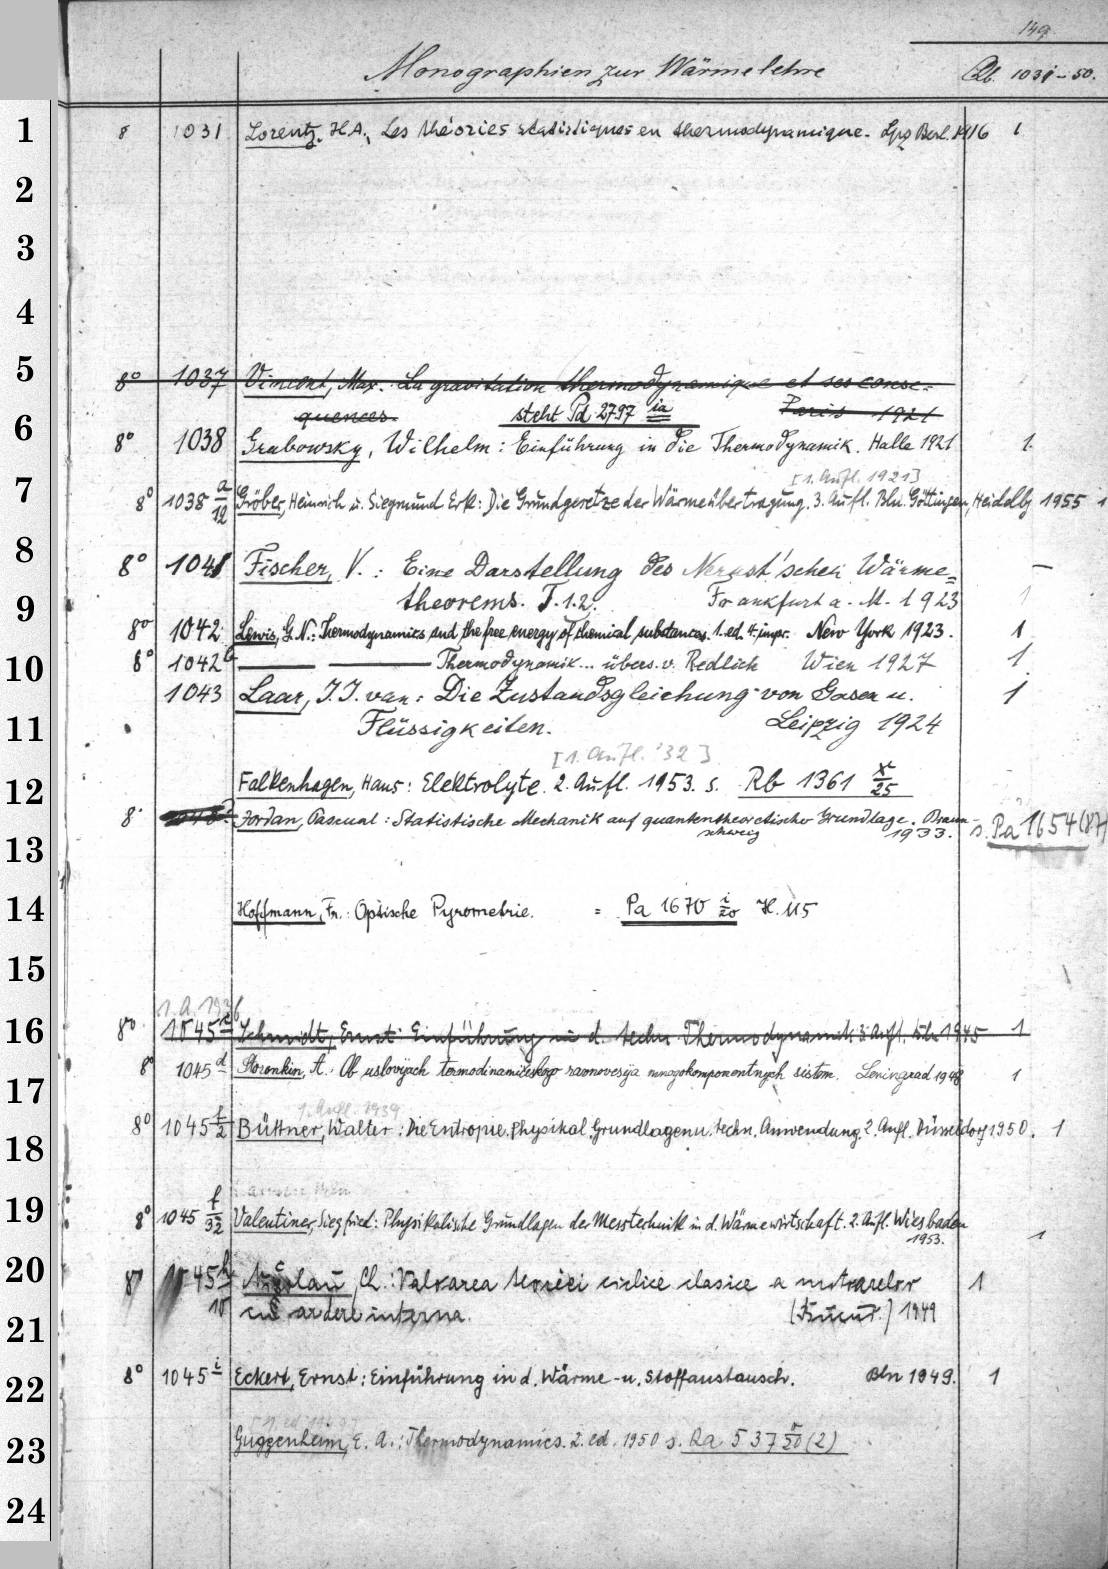 149
Monographien zur Wärmelehre Qb. 1031-50.
1 8 1031 Lorentz, H.A., Les théories statistiques en thermodynamique. Lpz Berl. 1916 1
2
3
4
5 8° 1037 Vincent, Max. La gravitation thermodynamique et ses consé-
quences. steht Pd 2797 ia Paris 1921
6 8° 1038 Grabowsky, Wilhelm: Einführung in die Thermodynamik. Halle 1921 1.
[1. Aufl. 1921]
7 8° 1038 a/12 Gröber, Heinrich u. Siegmund Erk: Die Grundgesetze der Wärmeübertragung. 3. Aufl. Bln. Göttingen, Heidelbg 1955 1
8 8° 1041 Fischer, V.: Eine Darstellung des Nernst'schen Wärme= –
9 theorems. T.1.2. Frankfurt a. M. 1923 1
8° 1042 Lewis, G.N.: Thermodynamics and the free energy of chemical substances. 1. ed. 4. impr. New York 1923. 1
10 8° 1042 b —— —— Thermodynamik... übers. v. Redlich Wien 1927 1
1043 Laar, J.J. van: Die Zustandsgleichung von Gasen u. 1
11 Flüssigkeiten. Leipzig 1924
[1. Aufl. '32]
12 Falkenhagen, Hans: Elektrolyte. 2. Aufl. 1953. s. Rb 1361 x/25
8° Jordan, Pascual: Statistische Mechanik auf quantentheoretischer Grundlage. Braun- s. Pa 1654 (87)
13 schweig 1933.
14 Hoffmann, Fr.: Optische Pyrometrie. = Pa 1670 i/20 H. 115
15
1. A. 1936
16 8° 1045 Schmidt, Ernst: Einführung in d. techn Thermodynamik 3. Aufl. Bln 1945 1
8° 1045 d Storonkin, A.: Ob uslovijach termodinamičeskogo ravnovesija mnogokomponentnych sistem. Leningrad 1948 1
17
1. Aufl. 1939
8° 1045 f/2 Büttner, Walter: Die Entropie. Physikal. Grundlagen u. techn. Anwendung. 2. Aufl. Düsseldorf 1950. 1
18
19 8° 1045 f/32 Valentiner, Siegfried: Physikalische Grundlagen der Messtechnik in d. Wärmewirtschaft. 2. Aufl. Wiesbaden
1953. 1
20 8° 1045 h/10 Nicolau, Ch.: Valoarea teoriei ciclice clasice a motoarelor 1
cu ardere interna. 1949
21
22 8° 1045 i Eckert, Ernst: Einführung in d. Wärme- u. Stoffaustausch. Bln 1949. 1
23 Guggenheim, E. A.: Thermodynamics. 2. ed. 1950 s. Ra 537 r/50 (2)
24